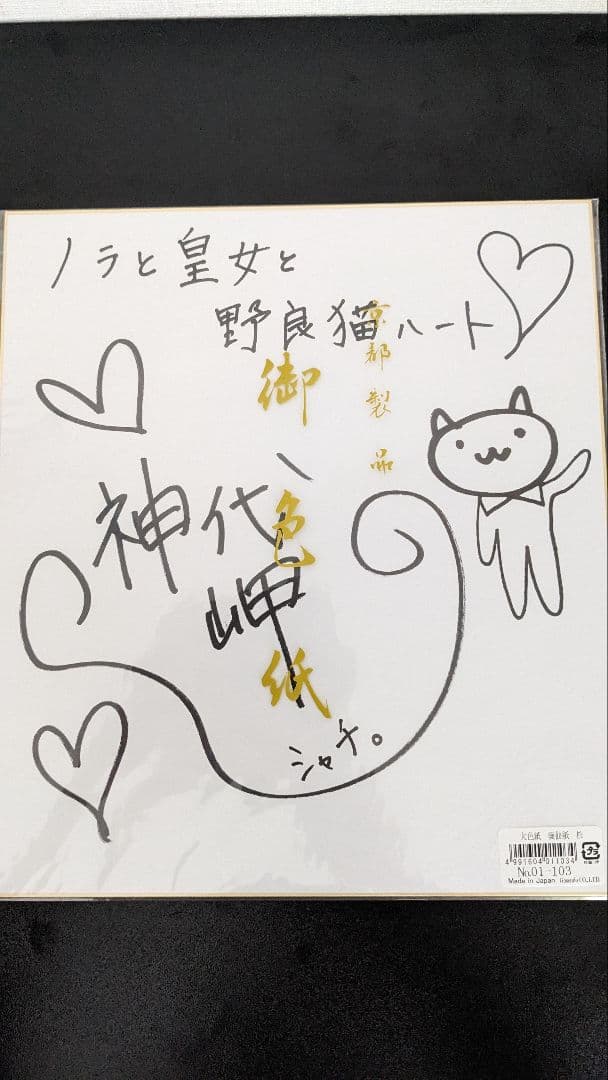 ノラと皇女と
野良猫ハート
京都製品
御色紙
神代岬
シャチ。
大色紙
4 991604 011034
No.01-103
Made in Japan